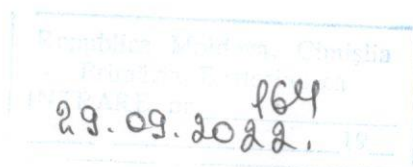 Republica Moldova, Cimișlia
INTRARE nr. 164
29.09.2022. 19